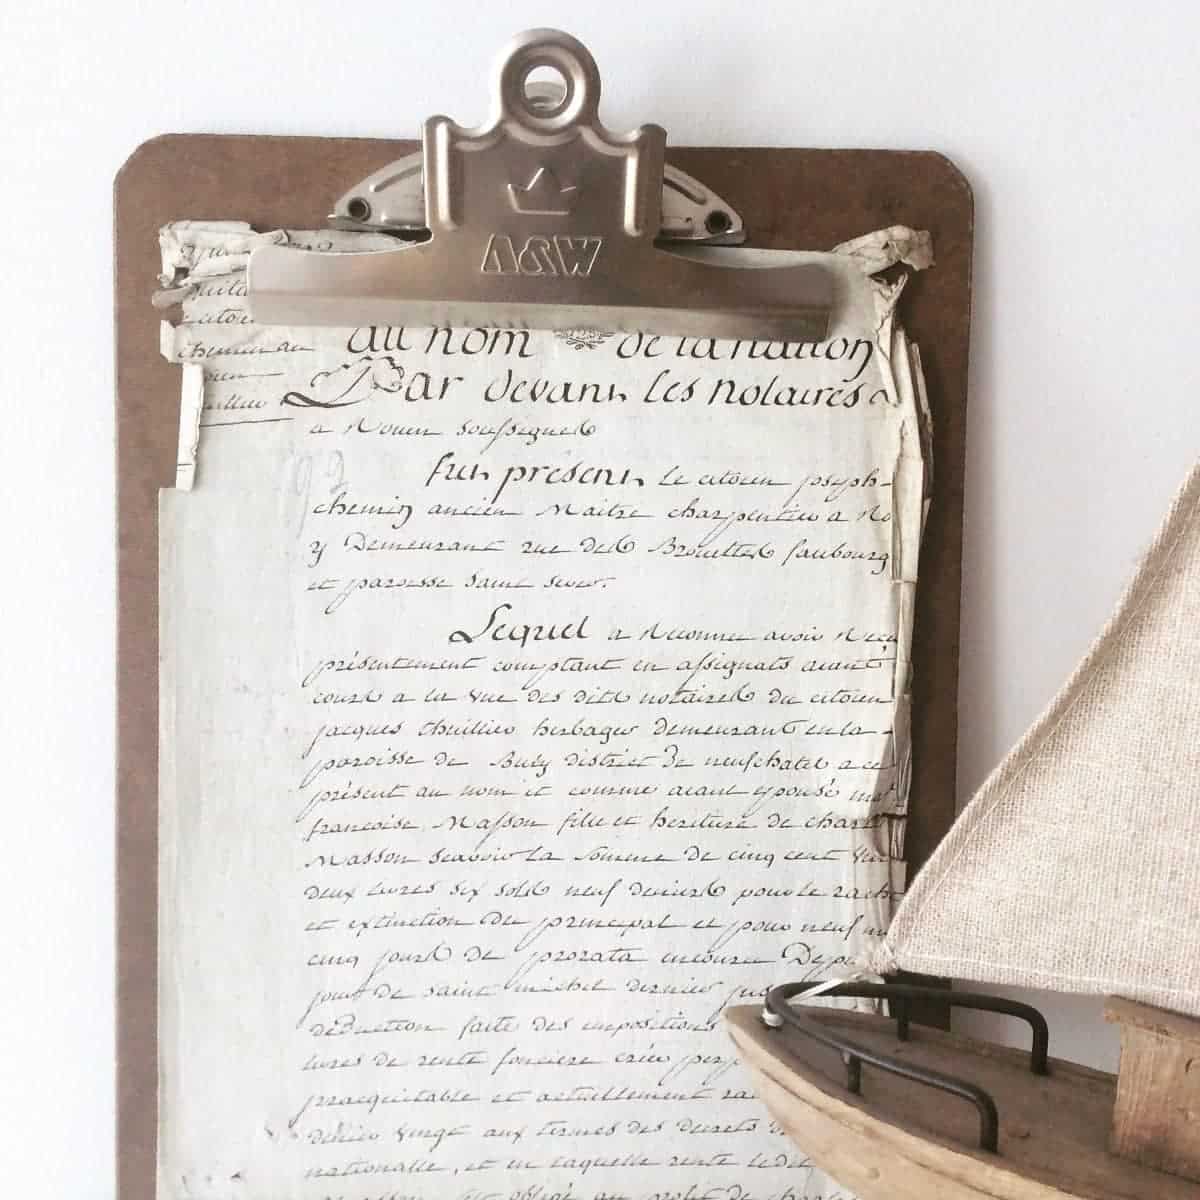 A&W
quit
citoy
chemin au
au nom de la nation
Par devant les notaires
a Rouen soussignés
fut présent le citoien joseph
chemin ancien Maitre charpentier a Ro
y Demeurant rue des Brouettes faubourg
et paroisse saint sever.
Lequel a Reconnu avoir Rece
présentement comptant en assignats aiant
cours a la vue des dits notaires du citoien
jacques thuillier herbager demeurant en la
paroisse de Bully district de neufchatel a ce
présent au nom et comme aiant epousé
francoise Masson fille et heritiere de charl
Masson scavoir la somme de cinq cent
deux livres six sols neuf deniers pour le rach
et extinction de principal et pour neuf m
cinq jours de prorata encourus Depu
jour de saint michel dernier jus
déduction faite des impositions
livres de rente fonciere créée
raquitable et actuellement ra
denier vingt aux termes des decrets
nationalle, et en laquelle rente ledit
obligé au profit de charles